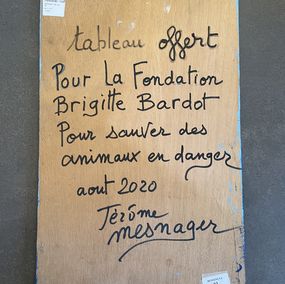 tableau offert
Pour La Fondation
Brigitte Bardot
Pour sauver des
animaux en danger
aout 2020
Jérôme
mesnager